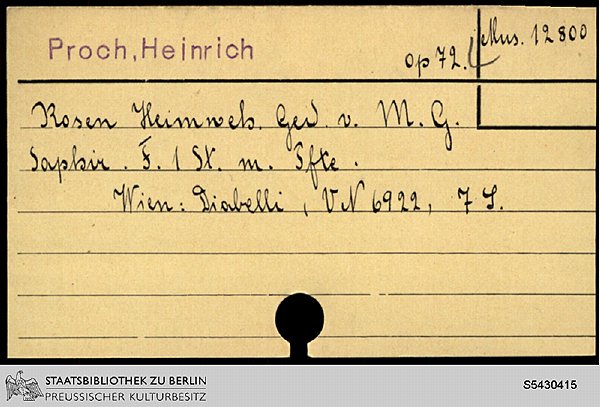 Proch, Heinrich
op 72.
Mus. 12800
Rosen Heimweh. Ged. v. M. G.
Saphir. F. 1 St. m. Pfte.
Wien: Diabelli, VN 6922, 7 S.
STAATSBIBLIOTHEK ZU BERLIN
PREUSSISCHER KULTURBESITZ
S5430415